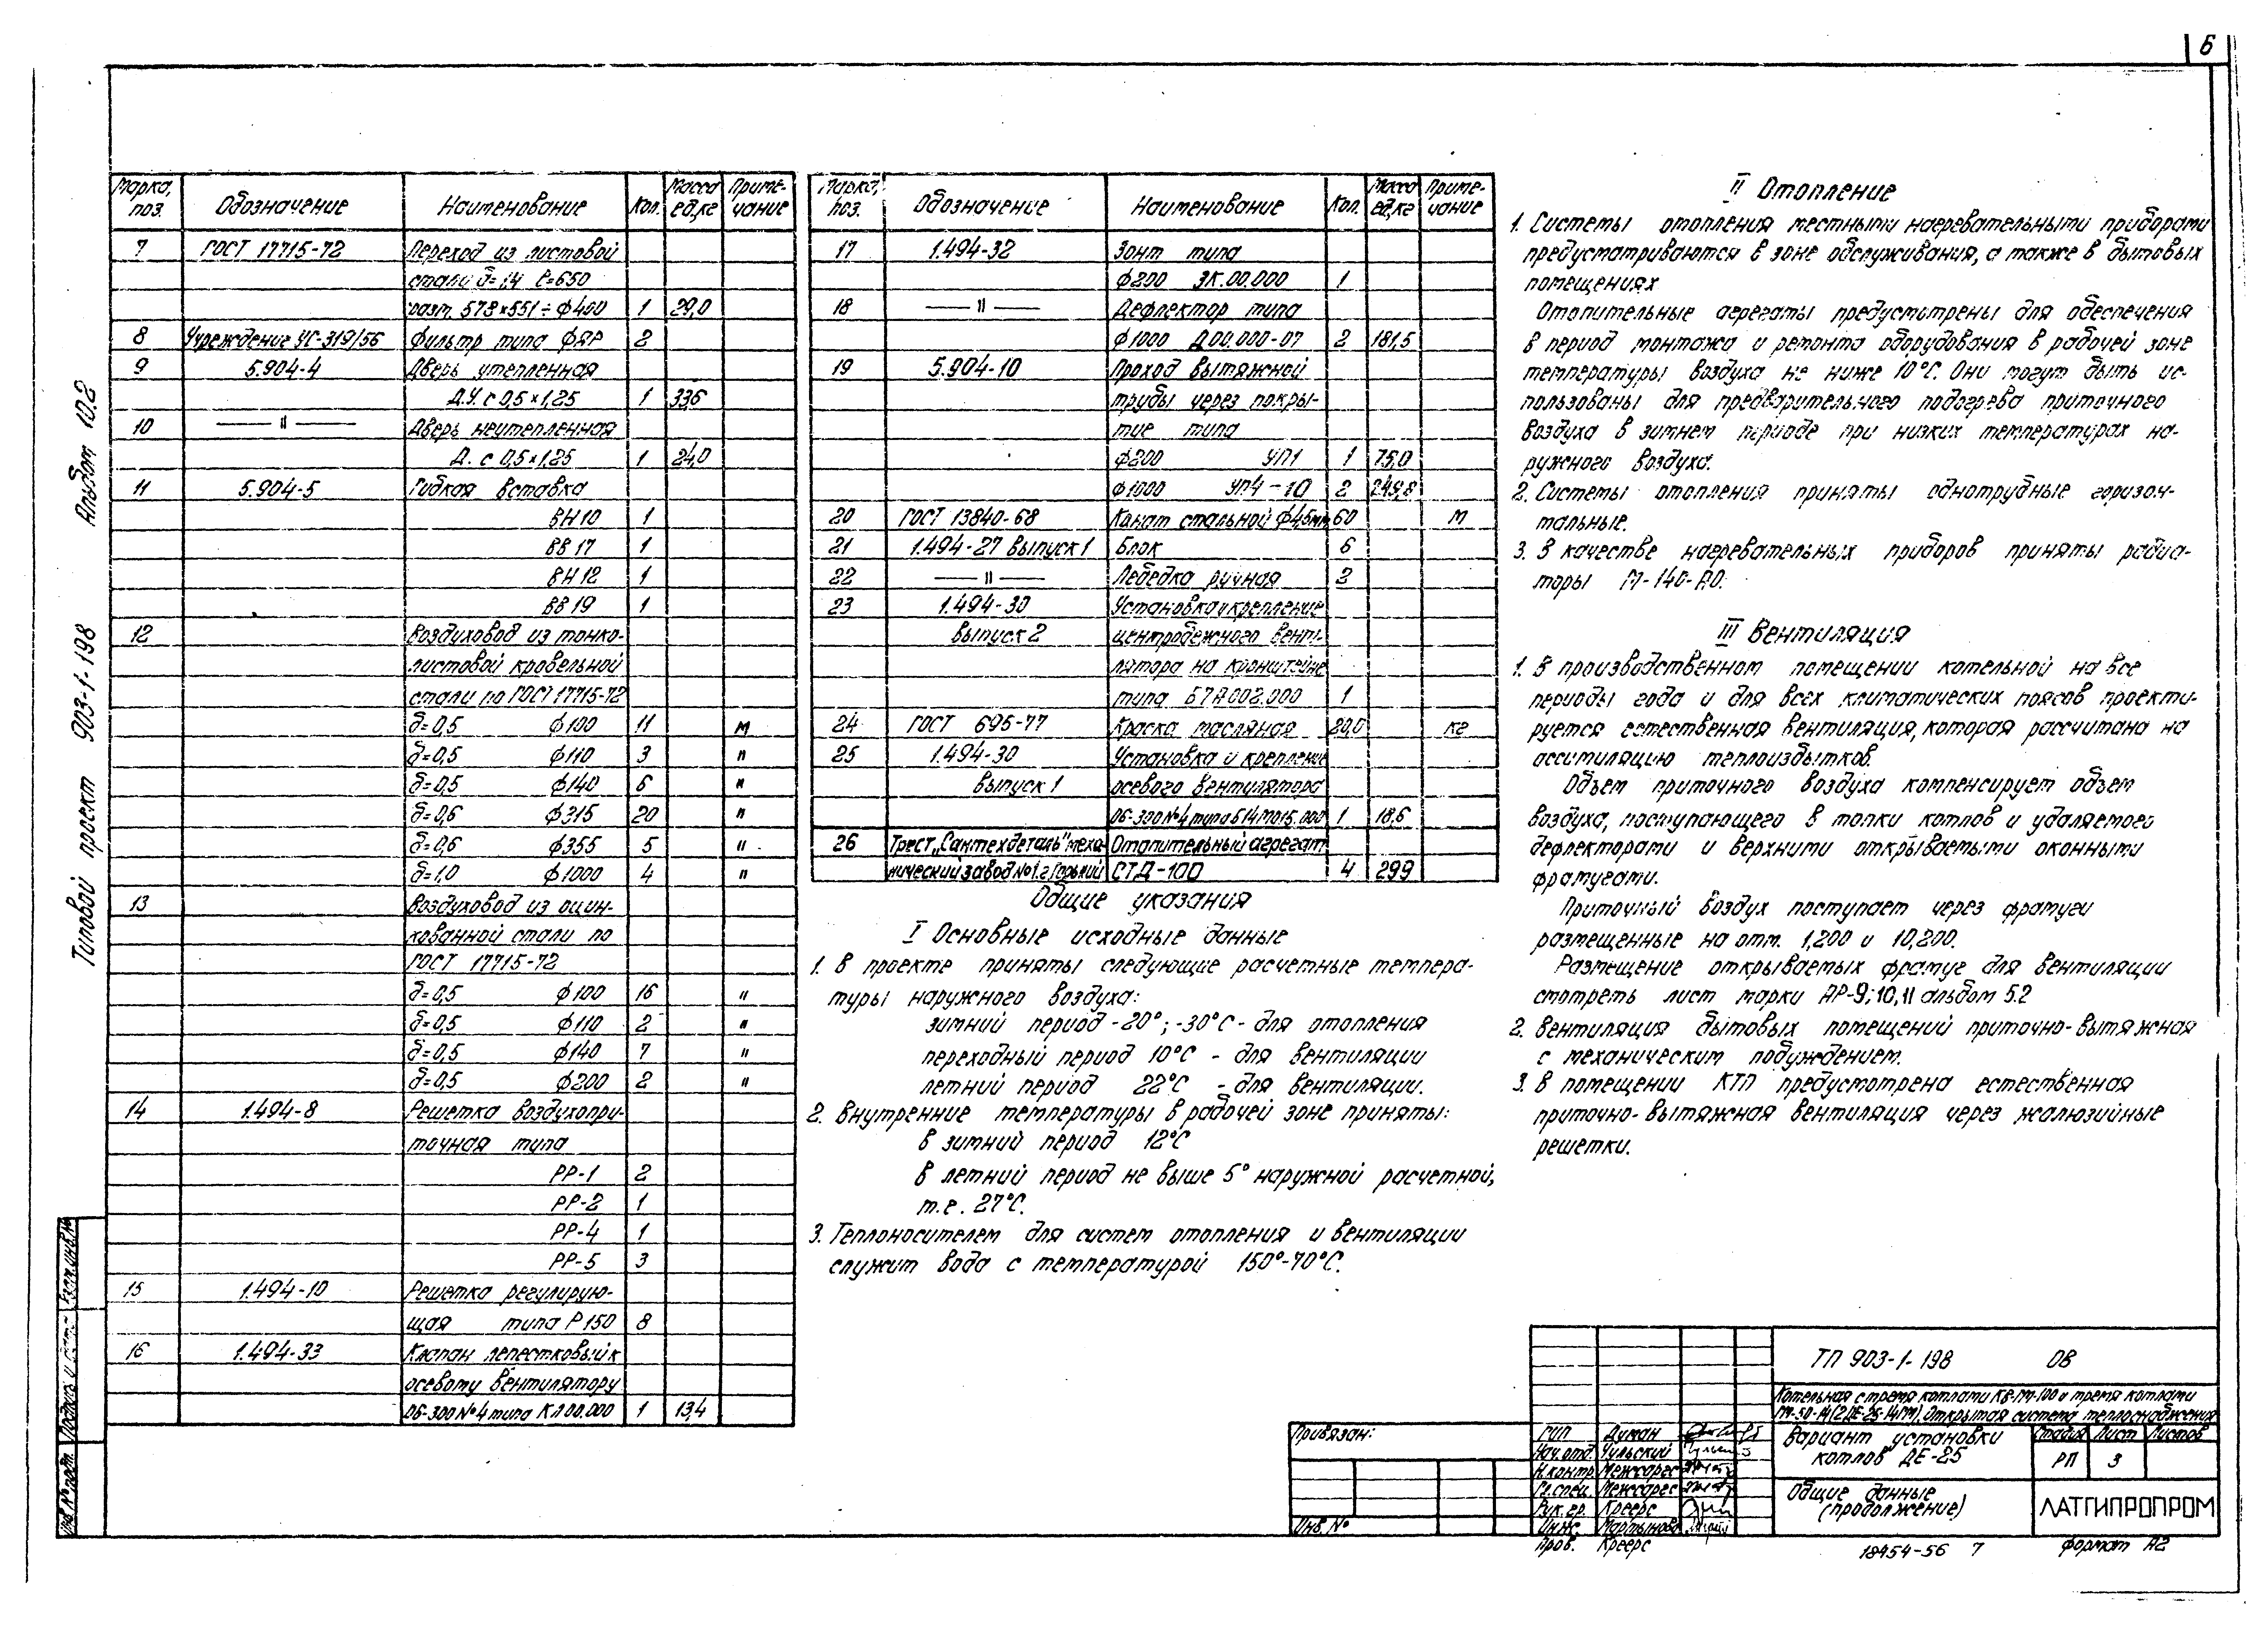 6
Марка, поз. Обозначение Наименование Кол. Масса ед,кг Приме-чание
7 ГОСТ 17715-72 Переход из листовой
стали δ=1,4 ℓ=650
разм. 578×551÷ф400 1 29,0
8 Учреждение УС-319/56 Фильтр типа ФЯР 2
9 5.904-4 Дверь утепленная
Д.У. с 0,5×1,25 1 33,6
10 —〃— Дверь неутепленная
Д. с 0,5×1,25 1 24,0
11 5.904-5 Гибкая вставка
ВН10 1
ВВ17 1
ВН12 1
ВВ19 1
12 Воздуховод из тонко-
листовой кровельной
стали по ГОСТ 17715-72
δ=0,5 ф100 11 м
δ=0,5 ф110 3 〃
δ=0,5 ф140 6 〃
δ=0,6 ф315 20 〃
δ=0,6 ф355 5 〃
δ=1,0 ф1000 4 〃
13 Воздуховод из оцин-
кованной стали по
ГОСТ 17715-72
δ=0,5 ф100 16 〃
δ=0,5 ф110 2 〃
δ=0,5 ф140 7 〃
δ=0,5 ф200 2 〃
14 1.494-8 Решетка воздухопри-
точная типа
РР-1 2
РР-2 1
РР-4 1
РР-5 3
15 1.494-10 Решетка регулирую-
щая типа Р150 8
16 1.494-33 Клапан лепестковый к
осевому вентилятору
06-300 №4 типа КЛ00.000 1 13,4
Марка, поз. Обозначение Наименование Кол. Масса ед,кг Приме-чание
17 1.494-32 Зонт типа
ф200 ЗК.00.000 1
18 —〃— Дефлектор типа
ф1000 Д00.000-07 2 181,5
19 5.904-10 Проход вытяжной
трубы через покры-
тие типа
ф200 УП1 1 75,0
ф1000 УП4-10 2 249,8
20 ГОСТ 13840-68 Канат стальной ф4,5мм 60 м
21 1.494-27 выпуск 1 Блок 6
22 —〃— Лебедка ручная 2
23 1.494-30 Установка и крепление
выпуск 2 центробежного венти-
лятора на кронштейне
типа Б7А002.000 1
24 ГОСТ 695-77 Краска масляная 20,0 кг
25 1.494-30 Установка и крепление
выпуск 1 осевого вентилятора
06-300 №4 типа Б14М015.000 1 18,6
26 Трест „Сантехдеталь" меха- Отопительный агрегат
нический завод №1 г. Горький СТД-100 4 299
Общие указания
I Основные исходные данные
1. В проекте приняты следующие расчетные темпера-
туры наружного воздуха:
зимний период -20°; -30°С - для отопления
переходный период 10°С - для вентиляции
летний период 22°С - для вентиляции.
2. Внутренние температуры в рабочей зоне приняты:
в зимний период 12°С
в летний период не выше 5° наружной расчетной,
т.е. 27°С.
3. Теплоносителем для систем отопления и вентиляции
служит вода с температурой 150°-70°С.
II Отопление
1. Системы отопления местными нагревательными приборами
предусматриваются в зоне обслуживания, а также в бытовых
помещениях
Отопительные агрегаты предусмотрены для обеспечения
в период монтажа и ремонта оборудования в рабочей зоне
температуры воздуха не ниже 10°С. Они могут быть ис-
пользованы для предварительного подогрева приточного
воздуха в зимнем периоде при низких температурах на-
ружного воздуха.
2. Системы отопления приняты однотрубные горизон-
тальные.
3. В качестве нагревательных приборов приняты радиа-
торы М-140-АО.
III Вентиляция
1. В производственном помещении котельной на все
периоды года и для всех климатических поясов проекти-
руется естественная вентиляция, которая рассчитана на
ассимиляцию теплоизбытков.
Объем приточного воздуха компенсирует объем
воздуха, поступающего в топки котлов и удаляемого
дефлекторами и верхними открываемыми оконными
фрамугами.
Приточный воздух поступает через фрамуги
размещенные на отм. 1,200 и 10,200.
Размещение открываемых фрамуг для вентиляции
смотреть лист марки АР-9; 10, 11 альбом 5.2
2. Вентиляция бытовых помещений приточно-вытяжная
с механическим побуждением.
3. В помещении КТП предусмотрена естественная
приточно-вытяжная вентиляция через жалюзийные
решетки.
Типовой проект 903-1-198 Альбом 10.2
Инв. № подл. Подпись и дата Взам. инв. №
Привязан:
Инв. №
ГИП Думан
Нач. отд. Чульский
Н. контр. Межсарес
Гл. спец. Межсарес
Рук. гр. Креерс
Инж. Мартынова
Пров. Креерс
ТП 903-1-198 ОВ
Котельная с тремя котлами КВ-ГМ-100 и тремя котлами
ГМ-50-14 (2 ДЕ-25-14ГМ). Открытая система теплоснабжения
Вариант установки
котлов ДЕ-25
Стадия Лист Листов
РП 3
Общие данные
(продолжение)
ЛАТГИПРОПРОМ
18454-56 7
Формат А2